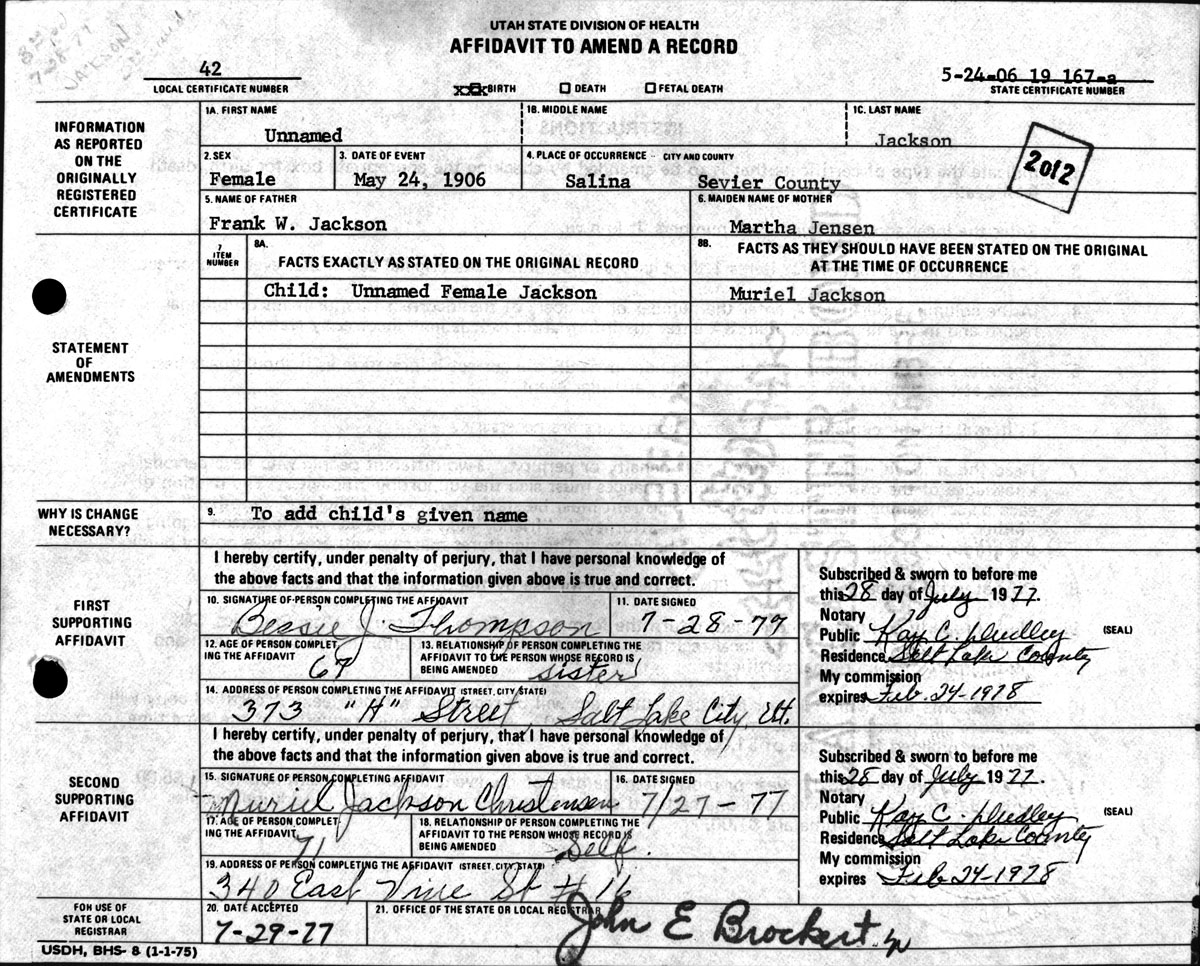 7-28-77
JACKSON
UTAH STATE DIVISION OF HEALTH
AFFIDAVIT TO AMEND A RECORD
42
LOCAL CERTIFICATE NUMBER
xxx BIRTH DEATH FETAL DEATH
5-24-06 19 167-a
STATE CERTIFICATE NUMBER
INFORMATION
AS REPORTED
ON THE
ORIGINALLY
REGISTERED
CERTIFICATE
1A. FIRST NAME
Unnamed
1B. MIDDLE NAME
1C. LAST NAME
Jackson
2. SEX
Female
3. DATE OF EVENT
May 24, 1906
4. PLACE OF OCCURRENCE - CITY AND COUNTY
Salina Sevier County
2 of 2
5. NAME OF FATHER
Frank W. Jackson
6. MAIDEN NAME OF MOTHER
Martha Jensen
STATEMENT
OF
AMENDMENTS
7
ITEM
NUMBER
8A.
FACTS EXACTLY AS STATED ON THE ORIGINAL RECORD
8B. FACTS AS THEY SHOULD HAVE BEEN STATED ON THE ORIGINAL
AT THE TIME OF OCCURRENCE
Child: Unnamed Female Jackson
Muriel Jackson
WHY IS CHANGE
NECESSARY?
9. To add child's given name
FIRST
SUPPORTING
AFFIDAVIT
I hereby certify, under penalty of perjury, that I have personal knowledge of
the above facts and that the information given above is true and correct.
10. SIGNATURE OF PERSON COMPLETING THE AFFIDAVIT
Bessie J. Thompson
11. DATE SIGNED
7-28-77
12. AGE OF PERSON COMPLET
ING THE AFFIDAVIT
67
13. RELATIONSHIP OF PERSON COMPLETING THE
AFFIDAVIT TO THE PERSON WHOSE RECORD IS
BEING AMENDED
sister
14. ADDRESS OF PERSON COMPLETING THE AFFIDAVIT (STREET, CITY, STATE)
373 "H" Street, Salt Lake City, Ut.
Subscribed & sworn to before me
this 28 day of July 1977.
Notary
Public Kay C. Dudley (SEAL)
Residence Salt Lake County
My commission
expires Feb. 24-1978
SECOND
SUPPORTING
AFFIDAVIT
I hereby certify, under penalty of perjury, that I have personal knowledge of
the above facts and that the information given above is true and correct.
15. SIGNATURE OF PERSON COMPLETING AFFIDAVIT
Muriel Jackson Christensen
16. DATE SIGNED
7/27-77
17. AGE OF PERSON COMPLET-
ING THE AFFIDAVIT
71
18. RELATIONSHIP OF PERSON COMPLETING THE
AFFIDAVIT TO THE PERSON WHOSE RECORD IS
BEING AMENDED
Self.
19. ADDRESS OF PERSON COMPLETING THE AFFIDAVIT (STREET, CITY, STATE)
340 East Vine St # 16
Subscribed & sworn to before me
this 28 day of July 1977.
Notary
Public Kay C. Dudley (SEAL)
Residence Salt Lake County
My commission
expires Feb 24-1978
FOR USE OF
STATE OR LOCAL
REGISTRAR
20. DATE ACCEPTED
7-29-77
21. OFFICE OF THE STATE OR LOCAL REGISTRAR
John E Brockert
USDH, BHS- 8 (1-1-75)